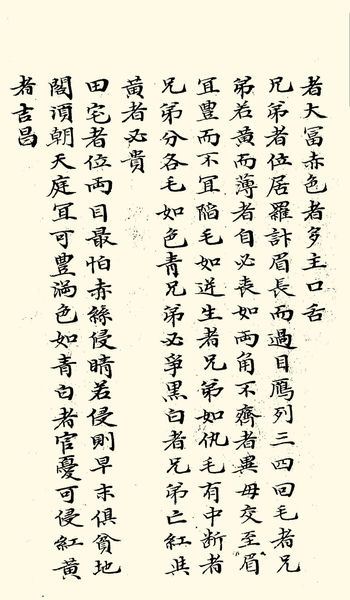 者大冨赤色者多主口舌
兄弟者位居羅計眉長而過目鴈列三四回毛者兄
弟若黄而薄者自必丧如両角不齊者異母交至眉
冝豊而不冝陷毛如逆生者兄弟如仇毛有中断者
兄弟分各毛如色青兄弟必爭黒白者兄弟亡紅
黄者必貴
田宅者位両目最怕赤絲侵睛若侵則早末俱貧地
閣湏朝天庭冝可豊滿色如青白者官憂可侵紅黄
者吉昌